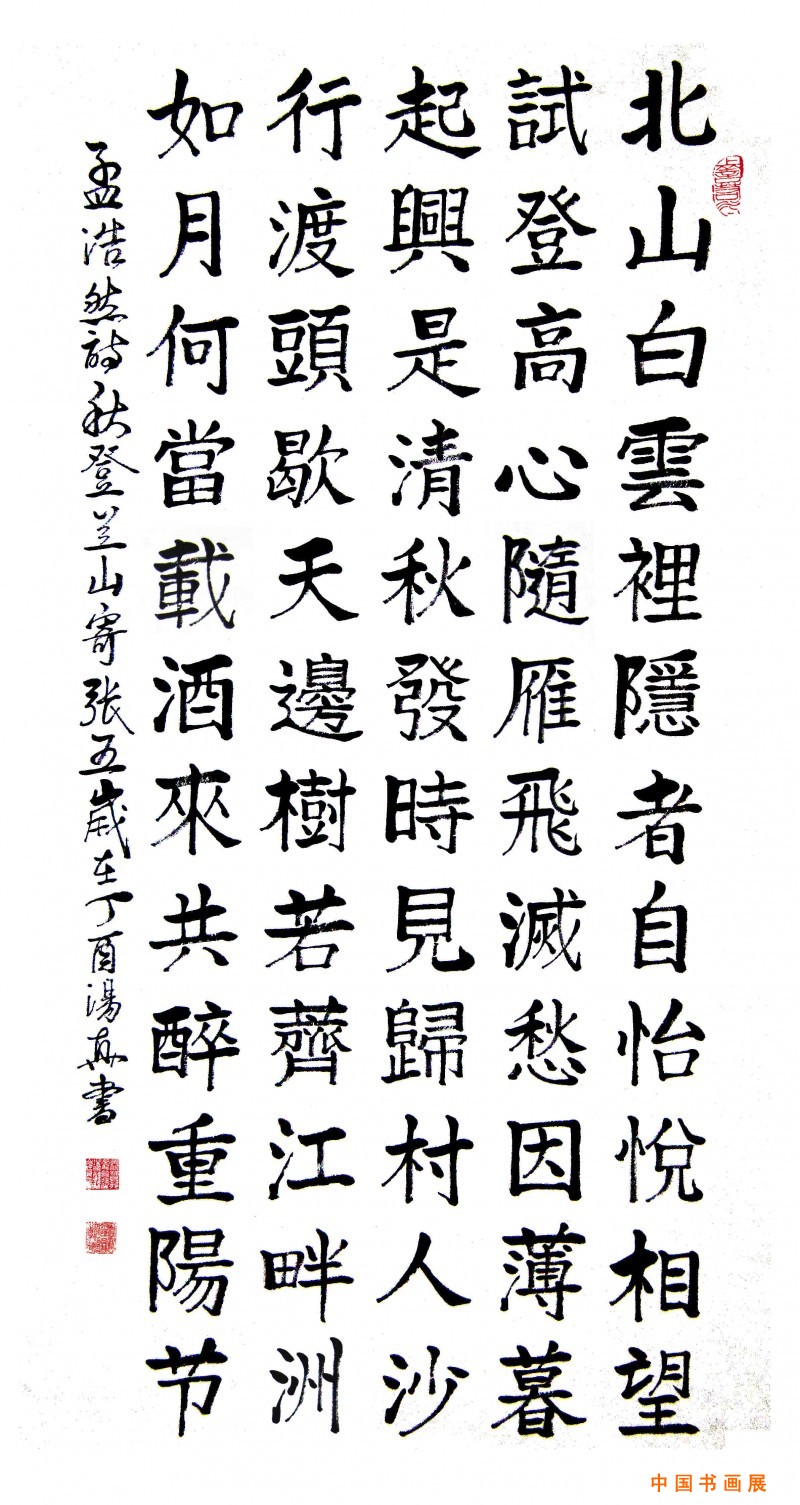 北山白雲裡隱者自怡悅相望
試登高心隨雁飛滅愁因薄暮
起興是清秋發時見歸村人沙
行渡頭歇天邊樹若薺江畔洲
如月何當載酒來共醉重陽节
孟浩然詩秋登兰山寄张五歲在丁酉湯書
中国书画展